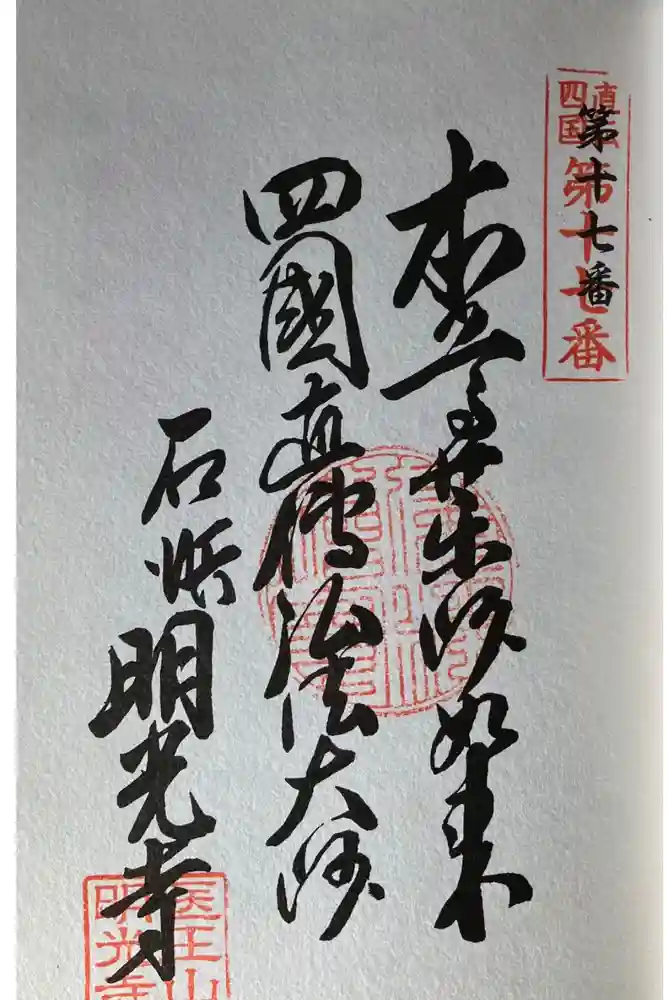 第十七番
直伝
四国
第十七番
本尊薬師如来
四國直傳弘法大師
石浜明光寺
医王山
明光寺